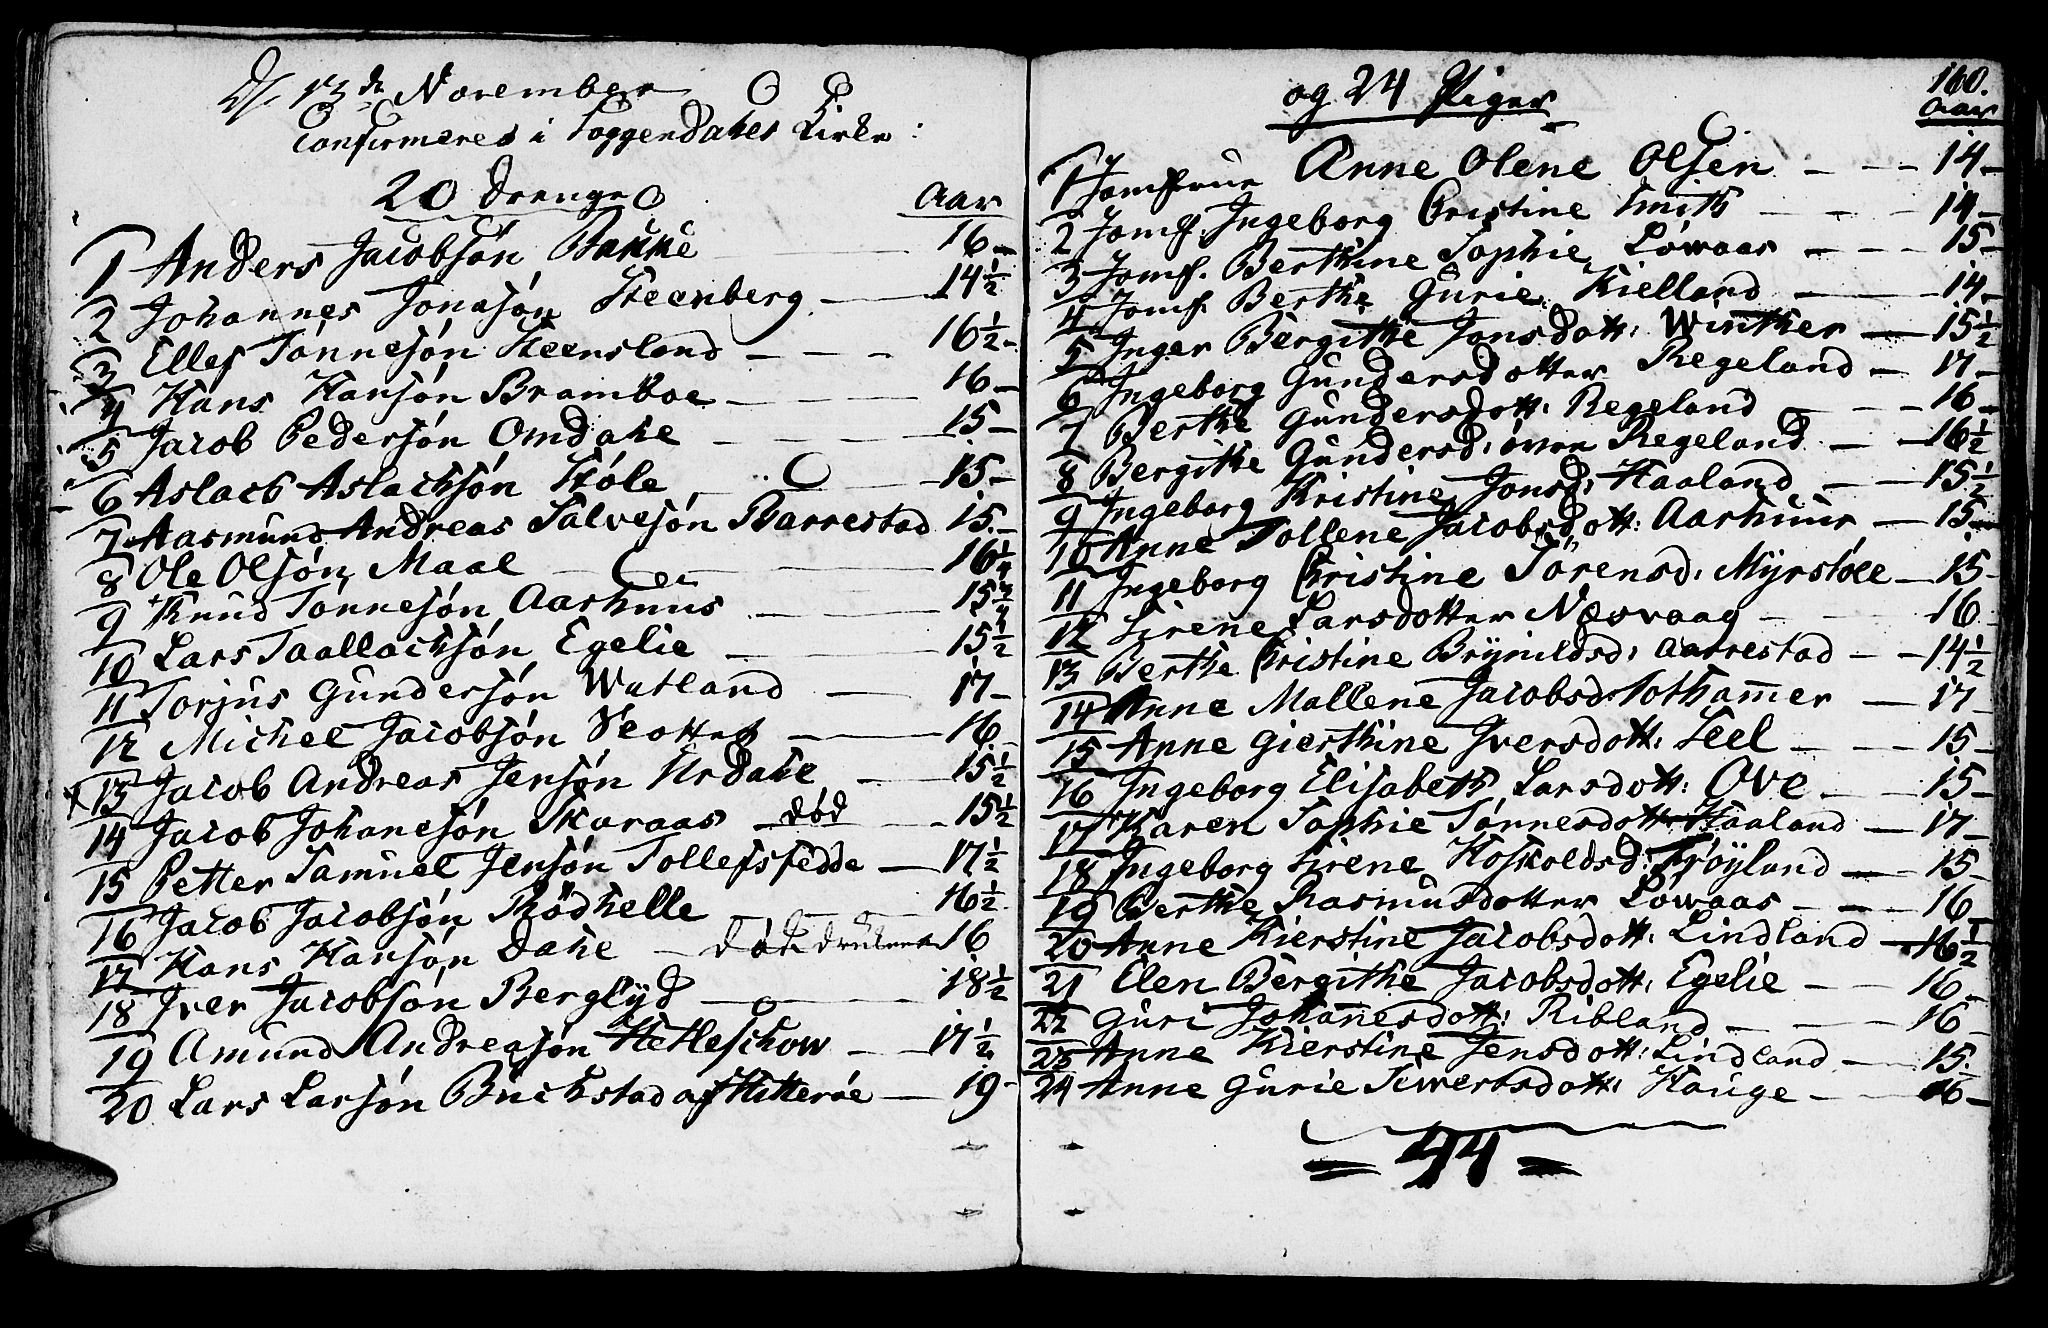 D. 13de November
Confirmeres i Soggendahls Kirke:
20 Drenge
Aar
1 Anders Jacobsøn Bakke — 16 —
2 Johannes Jonasøn Steenberg — 14 1/2
3 Ellef Tønnesøn Steensland — — — 16 1/2 —
4 Hans Hansøn Bramboe — — 16 —
5 Jacob Pedersøn Omdahl — — — 15 —
6 Aslach Aslachsøn Støle — — 15 —
7 Aasmund Andreas Salvesøn Barrestad 15. —
8 Ole Olsøn Maal — — 16 1/4
9 Knud Tønnesøn Aarhuus — — 15 3/4
10 Lars Taallachsøn Egelie — — 15 1/2
11 Torjus Gundersøn Watland — — 17 —
12 Michel Jacobsøn — 16 —
13 Jacob Andreas Jensøn Urdahl — — 15 1/2
14 Jacob Johanesøn Skaraas — død — 15 1/2
15 Petter Samuel Jensøn Tollefsfedde — 17 1/2
16 Jacob Jacobsøn Rødhelle — — 16 1/2
17 Hans Hansøn Dahl — død 16
18 Iver Jacobsøn Berglyd — — 18 1/2
19 Amund Andreasøn Hetleschow — — 17 1/2
20 Lars Larsøn Buchstad af Hitterøe — 19 —
160.
og 24 Piger
Aar
1 Jomfrue Anne Olene Olsen — — — 14 —
2 Jomf. Ingeborg Christine Smith — — — 14 —
3 Jomf. Berthine Sophie Løwaas — — — 15 —
4 Jomf. Berthe Gurie Kielland — — — 14 —
5 Inger Bergithe Jonsdott: Winther — 15 1/2
6 Ingeborg Gundersdotter Regeland — 17 —
7 Berthe Gundersdott: Regeland — — — 16 —
8 Bergithe Gundersd: øvre Regeland — — 16 1/2
9 Ingeborg Kristine Jonsd: Haaland — — 15 1/2
10 Anne Tollene Jacobsdott: Aarhuus — 15 —
11 Ingeborg Christine Sørensd: Myrstøl — 15 —
12 Sirene Larsdotter Næsvaag — — 16
13 Berthe Christine Brynildsd: Aarrestad — — 14 1/2
14 Anne Mallene Jacobsd: Tothammer — 17
15 Anne Gierthine Iversdott: Leel — — — 15 —
16 Ingeborg Elisabeth Larsdott: Ove — — — 15 —
17 Karen Sophie Tønnesdott: Haaland — 17 —
18 Ingeborg Sirene Hoskoldsd: Frøyland — 15 —
19 Berthe Rasmusdotter Løwaas — — — 16
20 Anne Kierstine Jacobsdott: Lindland — 16 1/2
21 Elen Bergithe Jacobsdott: Egelie — — 16 —
22 Guri Johannesdott: Ribland — — — 16 —
23 Anne Kierstine Jensdott: Lindland — 15.
24 Anne Gurie Siwertsdott: Hauge — — 16 —
= 44 =